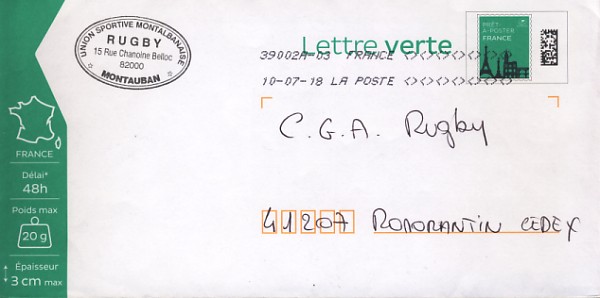 UNION SPORTIVE MONTALBANAISE
RUGBY
15 Rue Chanoine Belloc
82000
MONTAUBAN
Lettre verte
PRÊT-
À-POSTER
FRANCE
39002A-03 FRANCE
10-07-18 LA POSTE
C.G.A. Rugby
41207 ROMORANTIN CEDEX
FRANCE
Délai*
48h
Poids max
20 g
Épaisseur
3 cm max